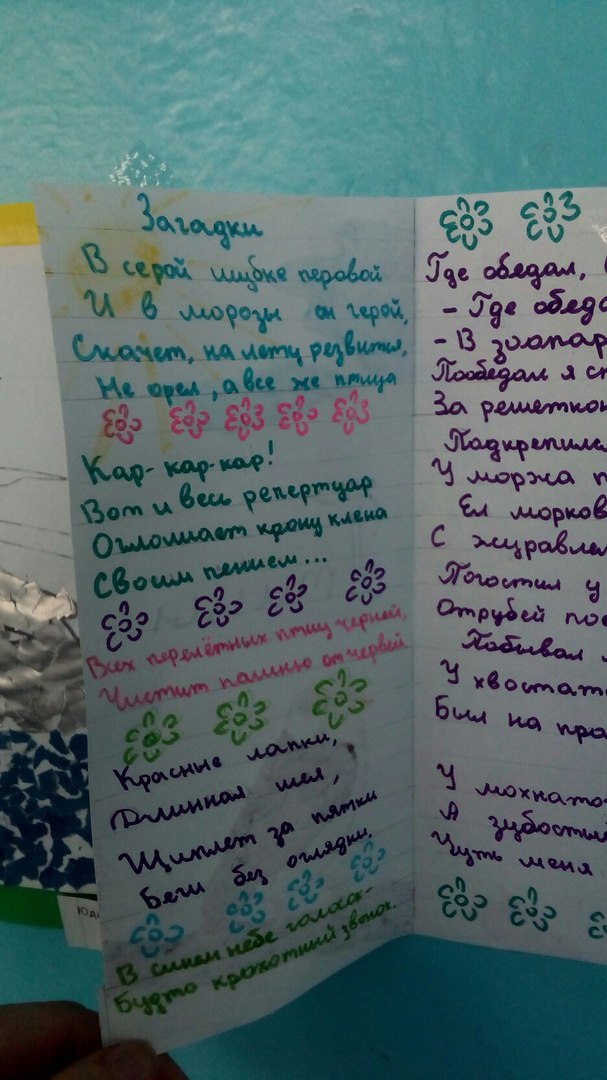 Загадки
В серой шубке перовой
И в морозы он герой,
Скачет, на лету резвится,
Не орел, а все же птица
Кар-кар-кар!
Вот и весь репертуар
Оглошает крону клена
Своим пением...
Всех перелётных птиц черней,
Чистит пашню от червей.
Красные лапки,
Длинная шея,
Щиплет за пятки
Беги без оглядки.
В синем небе голосок-
Будто крохотный звонок.
Где обедал,
- Где обеда
- В зоопар
Пообедал я
За решетко
Подкрепился
У моржа
Ел морков
С журавле
Погостил у
Отрубей
Побывал
У хвостат
Был на
У мохнато
А зубостый
Чуть меня